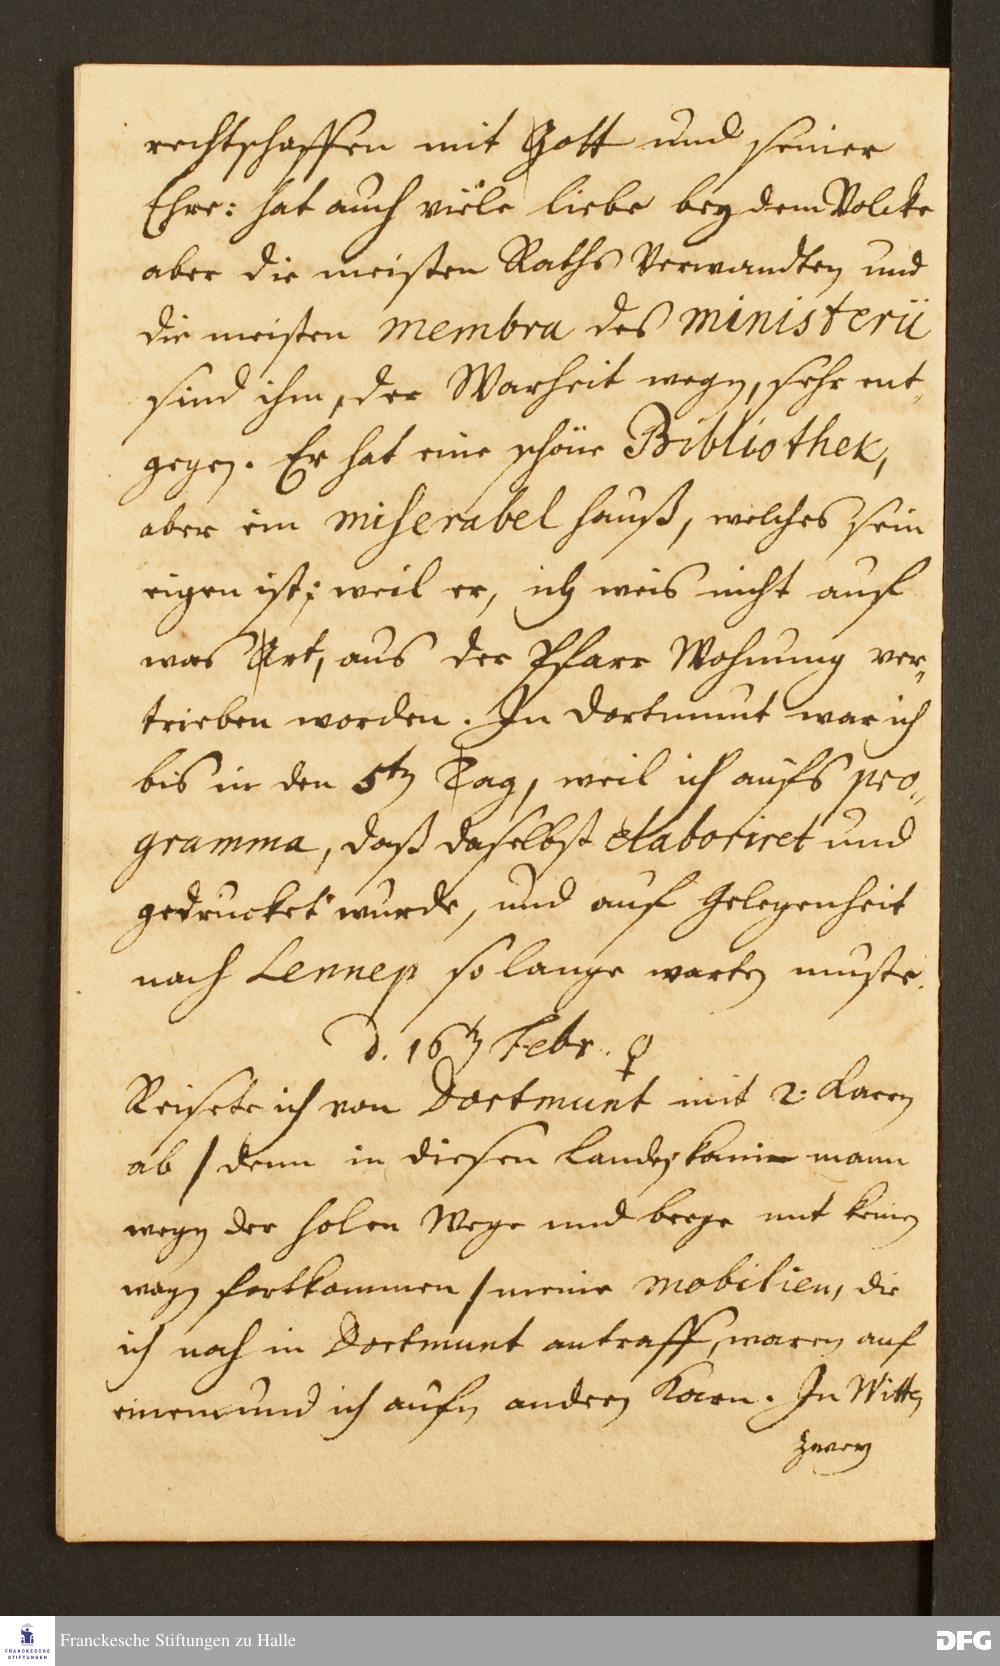 rechtschaffen mit Gott und seiner
Ehre: hat auch viele liebe bey dem Volcke
aber die meisten Raths Verwandten und
die meisten membra des ministerii
sind ihm, der Warheit wegen, sehr ent,,
gegen. Er hat eine schöne Bibliothek,
aber ein miserabel hauß, welches sein
eigen ist; weil er, ich weis nicht auf
was Art, aus der Pfarr Wohnung ver,,
trieben worden. In Dortmunt war ich
bis in den 5ten Tag, weil ich aufs pro,,
gramma, daß daselbst elaboriret und
gedrucket wurde, und auf Gelegenheit
nach Lennep so lange warten muste.
d. 16ten Febr. ♀
Reisete ich von Dortmunt mit 2: Karen
ab / denn in diesen Landen kann mann
wegen der holen Wege und berge mit keinen
wagen fortkommen / meine mobilien, die
ich noch in Dortmunt antraff, waren auf
einem und ich aufn andern Karn. In Witten
zwey
Franckesche Stiftungen zu Halle
FRANCKESCHE
STIFTUNGEN
DFG